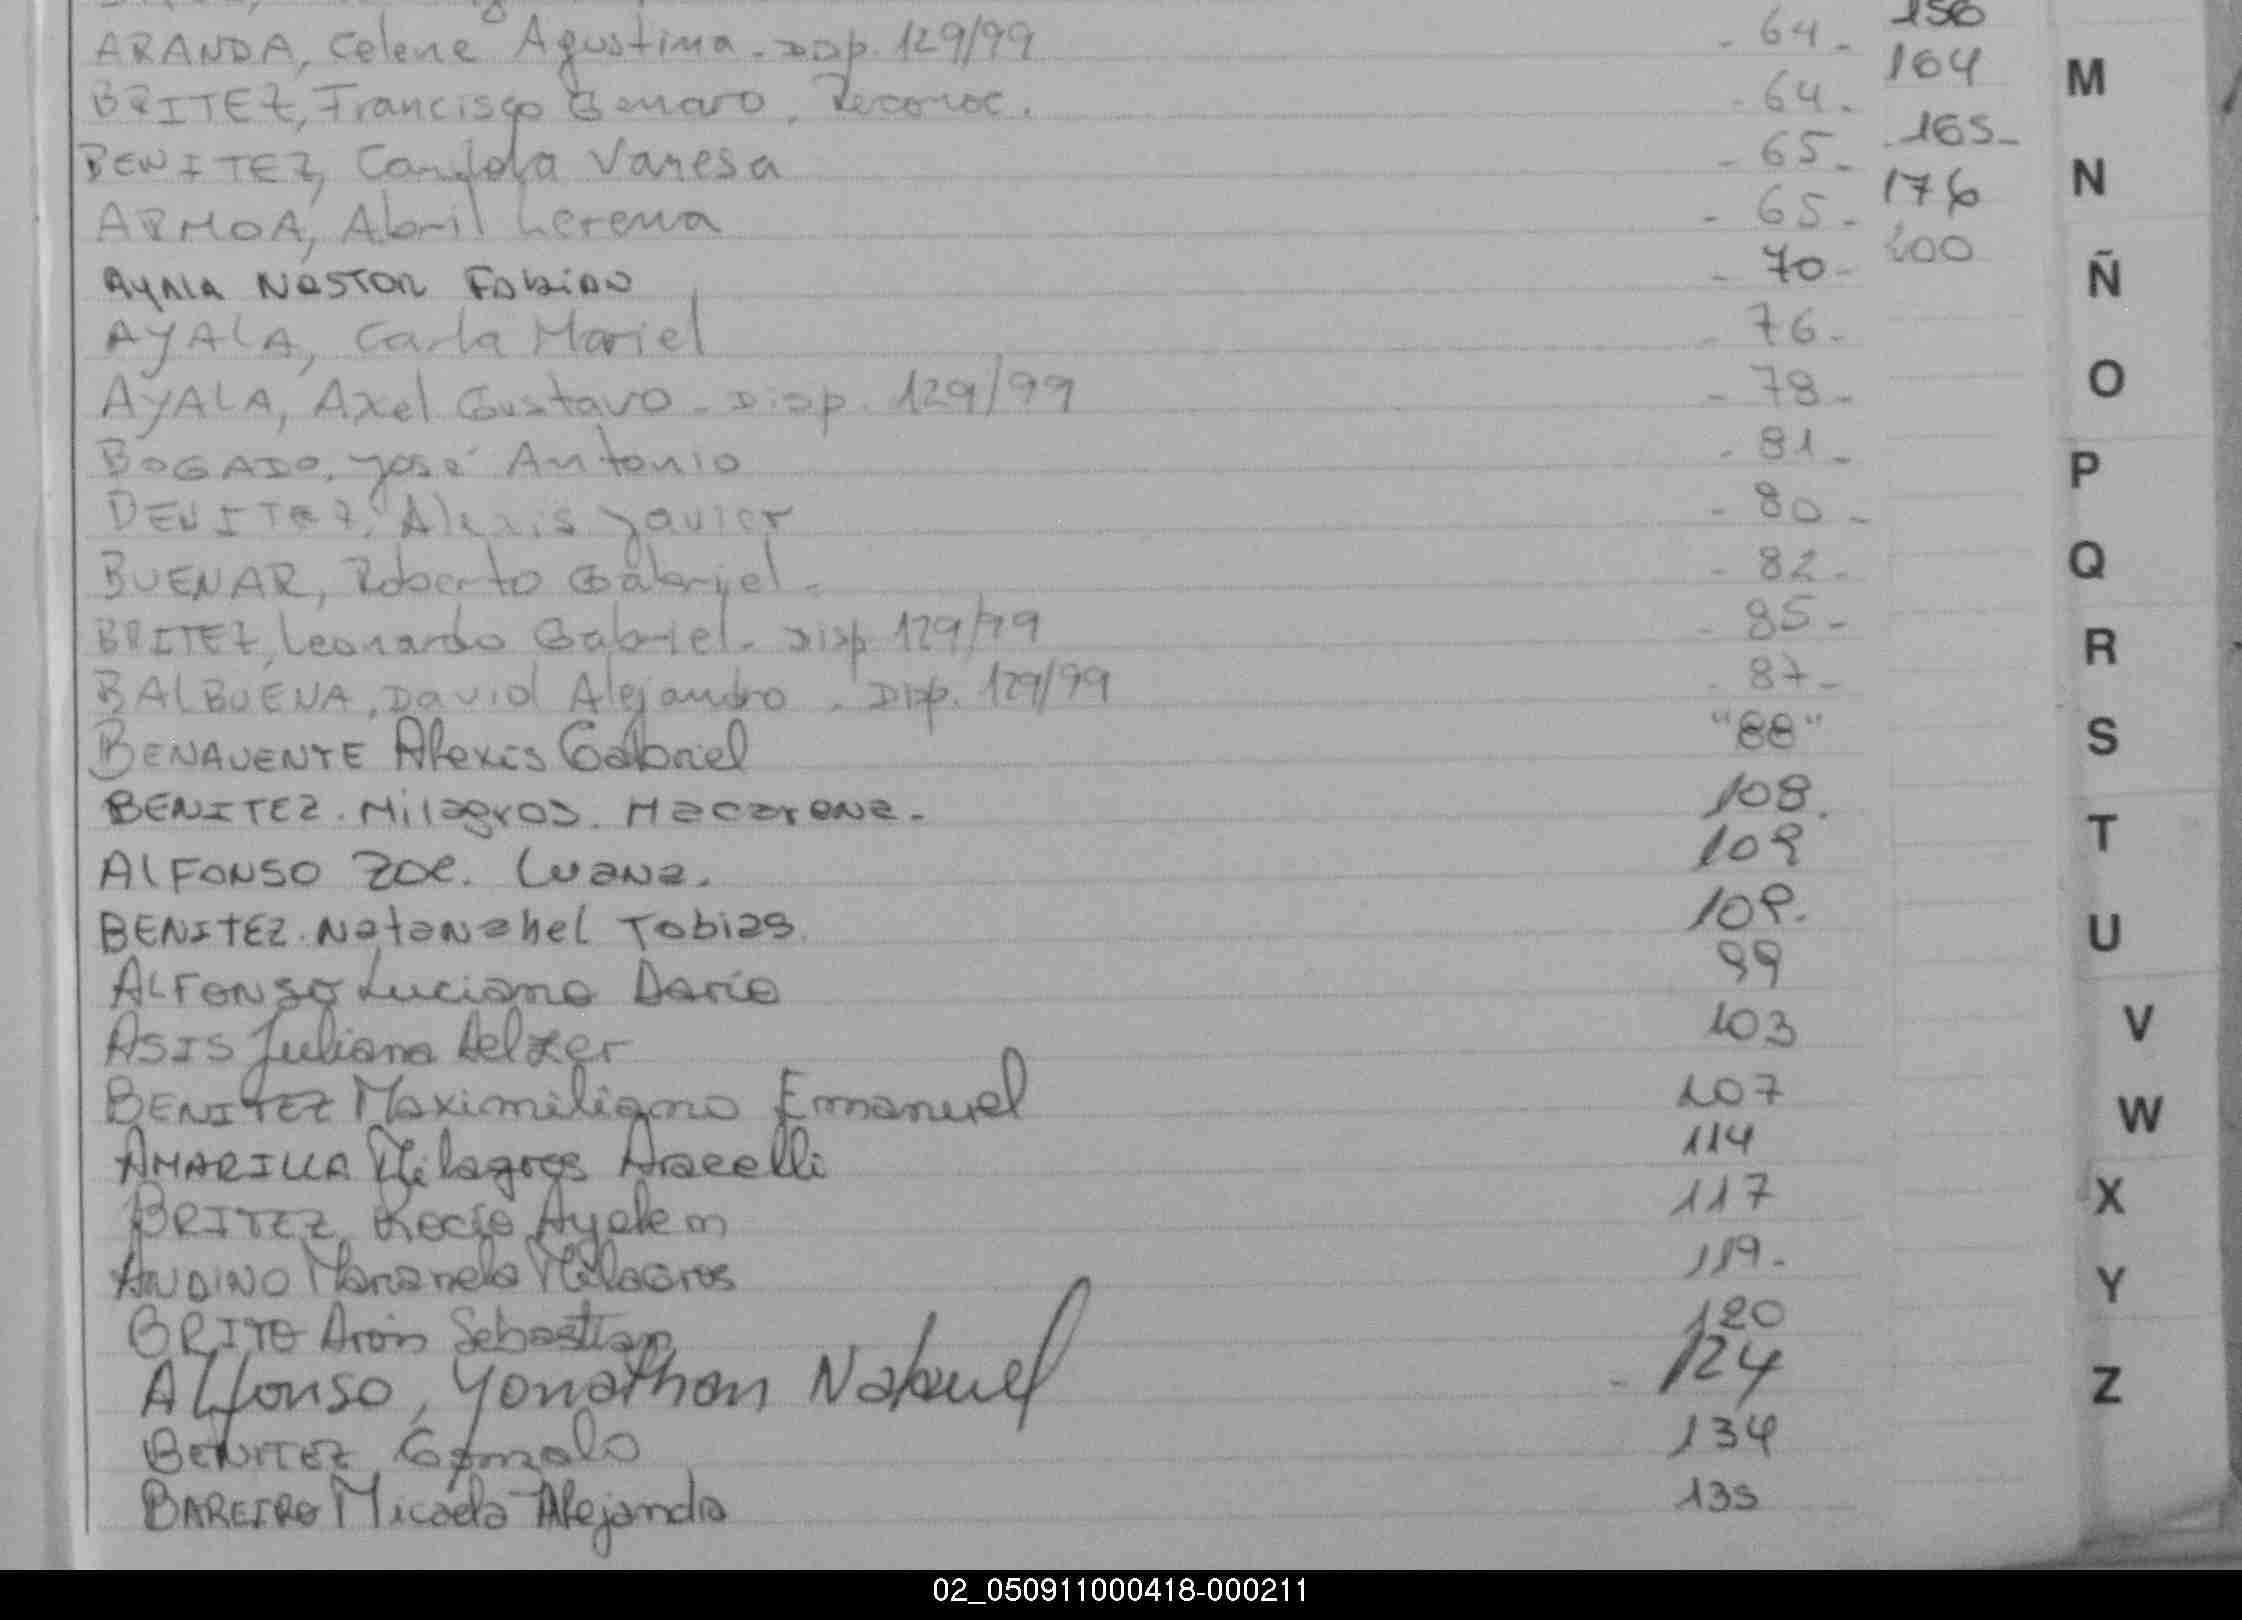 ARANDA, Celene Agustina - Disp. 129/99 - 64 - 156
BRITEZ, Francisco Genaro. Reconoc. - 64 - 164
BENITEZ, Candela Vanesa - 65 - 165 -
ARMOA, Abril Lerena - 65 - 176
AYALA NESTOR FABIAN - 70 - 200
AYALA, Carla Mariel - 76 -
AYALA, Axel Gustavo - Disp. 129/99 - 78 -
BOGADO, José Antonio - 81 -
BENITEZ, Alexis Javier - 80 -
BUENAR, Roberto Gabriel - - 82 -
BRITEZ, Leonardo Gabriel - Disp 129/99 - 85 -
BALBUENA, David Alejandro - Disp. 129/99 - 87 -
BENAVENTE Alexis Gabriel "88"
BENITEZ. Milagros. Macarena. 108.
ALFONSO Zoe. Luana. 109
BENITEZ. Natanahel Tobias. 109.
ALFONSO Luciano Dario 99
ASIS Juliana 103
BENITEZ Maximiliano Emanuel 107
AMARILLA Milagros Aracelli 114
BRITEZ Rocio Ayelem 117
ANDINO Marianela Milagros 119.
BRITO Aron Sebastian 120
Alfonso, Yonathan Nahuel - 124
BENITEZ Gonzalo 134
BAREIRO Micaela Alejandra 135
M
N
Ñ
O
P
Q
R
S
T
U
V
W
X
Y
Z
02_050911000418-000211